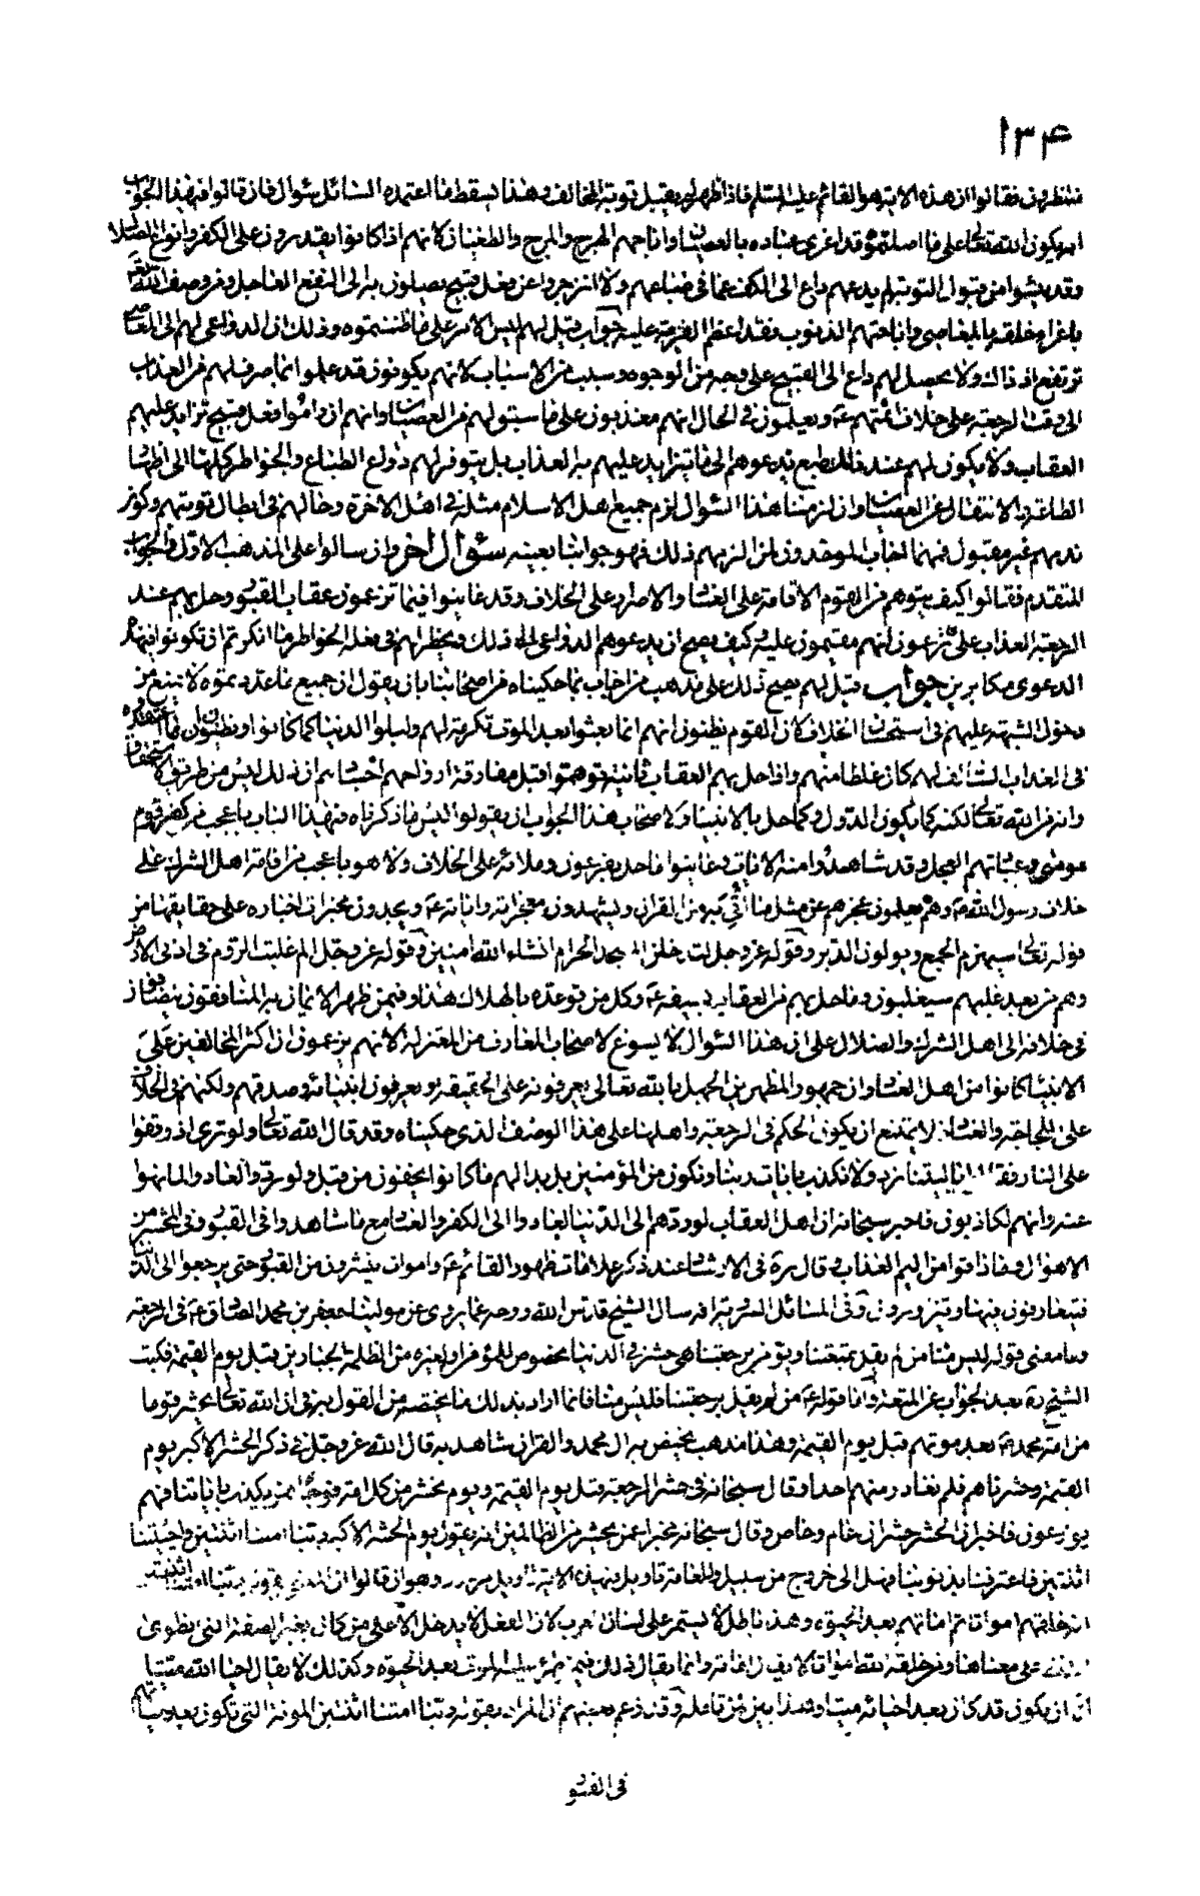 ۱۳۴
منتظرون فقالوا ان هذه الاية هو القائم عليه السلم فاذا ظهر لم يقبل توبة المخالف وهذا يسقط ما اعتمده السائل سؤال فان قالوا في هذا الجواب
ان يكون الله تعالى على ما اصلتموه قد اغرى عباده بالعصيان واباحهم الهرج والمرج والطغيان لانهم اذا كانوا يقدرون على الكفر وانواع الضلال
وقد يئسوا من قبول التوبة لم يدعهم داع الى الكف عما في طباعهم ولا انزجروا عن فعل قبيح يصلون به الى النفع العاجل ومن وصف الله تعالى
باغراء خلقه بالمعاصي واباحتهم الذنوب فقد اعظم الفرية عليه جواب قيل لهم ليس الامر على ما ظننتموه وذلك ان الدواعي لهم الى المعاصي
ترتفع اذ ذاك ولا يحصل لهم داع الى القبيح على وجه من الوجوه وسبب من الاسباب لانهم يكونون قد علموا بما سلف لهم من العذاب
الى وقت الرجعة على خلاف ائمتهم ع ويعلمون في الحال انهم معذبون على ما سبق لهم من العصيان وانهم ان راموا فعل قبيح تزايد عليهم
العقاب ولا يكون لهم عند ذلك طبع يدعوهم الى ما يتزايد عليهم به العذاب بل يتوفر لهم دواعي الطباع والخواطر كلها الى اظهار
الطاعة والانتقال عن العصيان وان لزمنا هذا السؤال لزم جميع اهل الاسلام مثله في اهل الاخرة وحالهم في ابطال توبتهم وكون
ندمهم غير مقبول فمهما اجاب الموحدون لمن الزمهم ذلك فهو جوابنا بعينه سؤال اخر وان سالوا على المذهب الاول والجواب
المتقدم فقالوا كيف يتوهم من القوم الاقامة على العناد والاصرار على الخلاف وقد عاينوا فيما تزعمون عقاب القبور وحل بهم عند
الرجعة العذاب على ما تزعمون انهم مقيمون عليه كيف يصح ان يدعوهم الدواعي الى ذلك ويخطر لهم في فعله الخواطر ما انكرتم ان تكونوا في هذه
الدعوى مكابرين جواب قيل لهم يصح ذلك على مذهب من اجاب بما حكيناه من اصحابنا بان يقول ان جميع ما عددتموه لا يمنع من
دخول الشبهة عليهم في استحسان الخلاف لان القوم يظنون انهم انما بعثوا بعد الموت تكرمة لهم وليلوا الدنيا كما كانوا ويظنون ان ما اعتقدوه
في العذاب السالف لهم كان غلطا منهم واذا حل بهم العقاب ثانية توهموا قبل مفارقة ارواحهم اجسادهم ان ذلك ليس من طريق الاستحقاق
وانه من الله تعالى لكنه كما يكون الدول وكما حل بالانبياء ولاصحاب هذا الجواب ان يقولوا ليس ما ذكرناه في هذا الباب باعجب من كفر قوم
موسى وعبادتهم العجل وقد شاهدوا منه الايات وعاينوا ما حل بفرعون وملائه على الخلاف ولا هو باعجب من اقامة اهل الشرك على
خلاف رسول الله ص وهم يعلمون عجزهم عن مثل ما اتى به من القران ويشهدون معجزاته واياته ع ويجدون مخبرات اخباره على حقايقها من
قوله تعالى سيهزم الجمع ويولون الدبر وقوله عز وجل لتدخلن المسجد الحرام انشاء الله امنين وقوله عز وجل الم غلبت الروم في ادنى الارض
وهم من بعد غلبهم سيغلبون وما حل بهم من العقاب بسيفه ع وكل من توعده بالهلاك هذا وفيمن اظهر الايمان به المنافقون ينضافون
في خلافه الى اهل الشرك والضلال على ان هذا السؤال لا يسوغ لاصحاب المعارف من المعتزلة لانهم يزعمون ان اكثر المخالفين على
الانبياء كانوا من اهل العناد وان جمهور المظهرين الجهل بالله تعالى يعرفونه على الحقيقة ويعرفون انبيائه وصدقهم ولكنهم في الخلاف
على اللجاجة والعناد لا يمتنع ان يكون الحكم في الرجعة واهلها على هذا الوصف الذي حكيناه وقد قال الله تعالى ولو ترى اذ وقفوا
على النار فقالوا يا ليتنا نرد ولا نكذب بايات ربنا ونكون من المؤمنين بل بدا لهم ما كانوا يخفون من قبل ولو ردوا لعادوا لما نهوا
عنه وانهم لكاذبون فاخبر سبحانه ان اهل العقاب لو ردهم الى الدنيا لعادوا الى الكفر والعناد مع ما شاهدوا في القبور وفي المحشر من
الاهوال وما ذاقوا من اليم العذاب وقال ره في الارشاد عند ذكر علامات ظهور القائم ع واموات ينشرون من القبور حتى يرجعوا الى الدنيا
فيتعارفون فيها ويتزاورون وفي المسائل السروية انه سال الشيخ قدس الله روحه عما يروى عن مولينا جعفر بن محمد الصادق ع في الرجعة
وما معنى قوله ليس منا من لم يقل بمتعتنا ويؤمن برجعتنا اهي حشر في الدنيا مخصوص للمؤمن او لغيره من الظلمة الجبارين قبل يوم القيمة فكتب
الشيخ ره بعد الجواب عن المتعة واما قوله ع من لم يقل برجعتنا فليس منا فانما اراد بذلك ما يختصه من القول به في ان الله تعالى يحشر قوما
من امة محمد ص بعد موتهم قبل يوم القيمة وهذا مذهب يختص به ال محمد والقران شاهد به قال الله عز وجل في ذكر الحشر الاكبر يوم
القيمة وحشرناهم فلم نغادر منهم احدا وقال سبحانه في حشر الرجعة قبل يوم القيمة ويوم نحشر من كل امة فوجا ممن يكذب باياتنا فهم
يوزعون فاخبر ان الحشر حشران عام وخاص وقال سبحانه مخبرا عمن يحشر من الظالمين انه يقول يوم الحشر الاكبر ربنا امتنا اثنتين واحييتنا
اثنتين فاعترفنا بذنوبنا فهل الى خروج من سبيل وللعامة في هذه الاية تاويل مردود وهو ان قالوا ان المعنى بقوله ربنا امتنا اثنتين
انه خلقهم امواتا ثم اماتهم بعد الحيوة وهذا باطل لا يستمر على لسان العرب لان الفعل لا يدخل الا على من كان بغير الصفة التي انطوى
اللفظ على معناها ومن خلقه الله امواتا لا يقال اماته وانما يقال ذلك فيمن طرء عليه الموت بعد الحيوة وكذلك لا يقال احيا الله ميتا
الا ان يكون قد كان بعد احيائه ميتا وهذا بين لمن تامله وقد زعم بعضهم ان المراد بقوله ربنا امتنا اثنتين الموتة التي تكون بعد حياتهم
في القبور